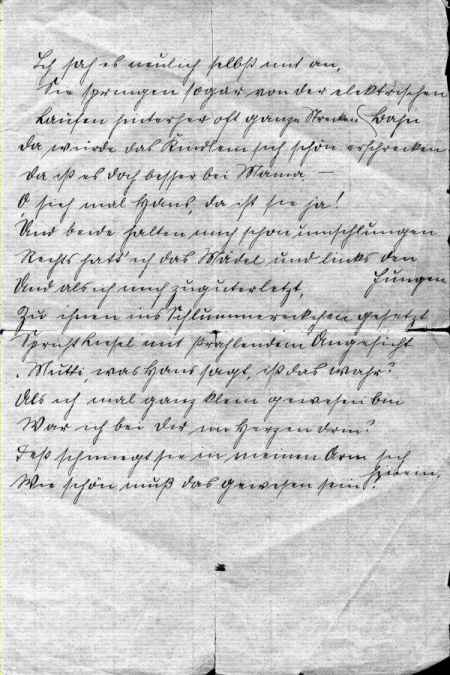 Ich sah es neulich selbst mit an,
Sie springen sogar von der elektrischen
Bahn
Laufen hinterher oft ganze Strecken
Da würde das Kindlein sich schön erschrecken
Da ist es doch besser bei Mama —
O sieh mal Hans, da ist sie ja!
Und beide halten mich schon umschlungen
Rechts hatt' ich das Mädel und links den
Jungen
Und als ich mich zuguterletzt,
Zu ihnen ins Schlummereckchen gesetzt
Spricht Liesel mit strahlendem Angesicht
„Mutti, was Hans sagt, ist das wahr?
Als ich mal ganz klein gewesen bin
War ich bei Dir im Herzen drin?
schmiegt sie in meinen Arm sich
hinein,
Wie schön muß das gewesen sein!"